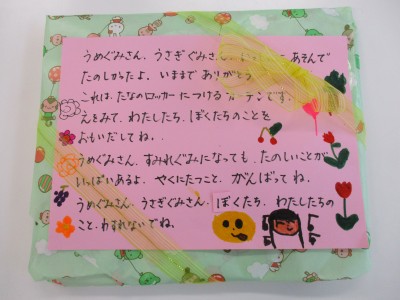 うめぐみさん、うさぎぐみさん、 あそんで
たのしかったよ。いままで ありがとう
これは、たなのロッカーにつけるカーテンです。
えをみて、わたしたち、ぼくたちのことを
おもいだしてね。
うめぐみさん、すみれぐみになっても、たのしいことが
いっぱいあるよ。やくにたつこと、がんばってね。
うめぐみさん、うさぎぐみさん、ぼくたち、わたしたちの
こと、わすれないでね。